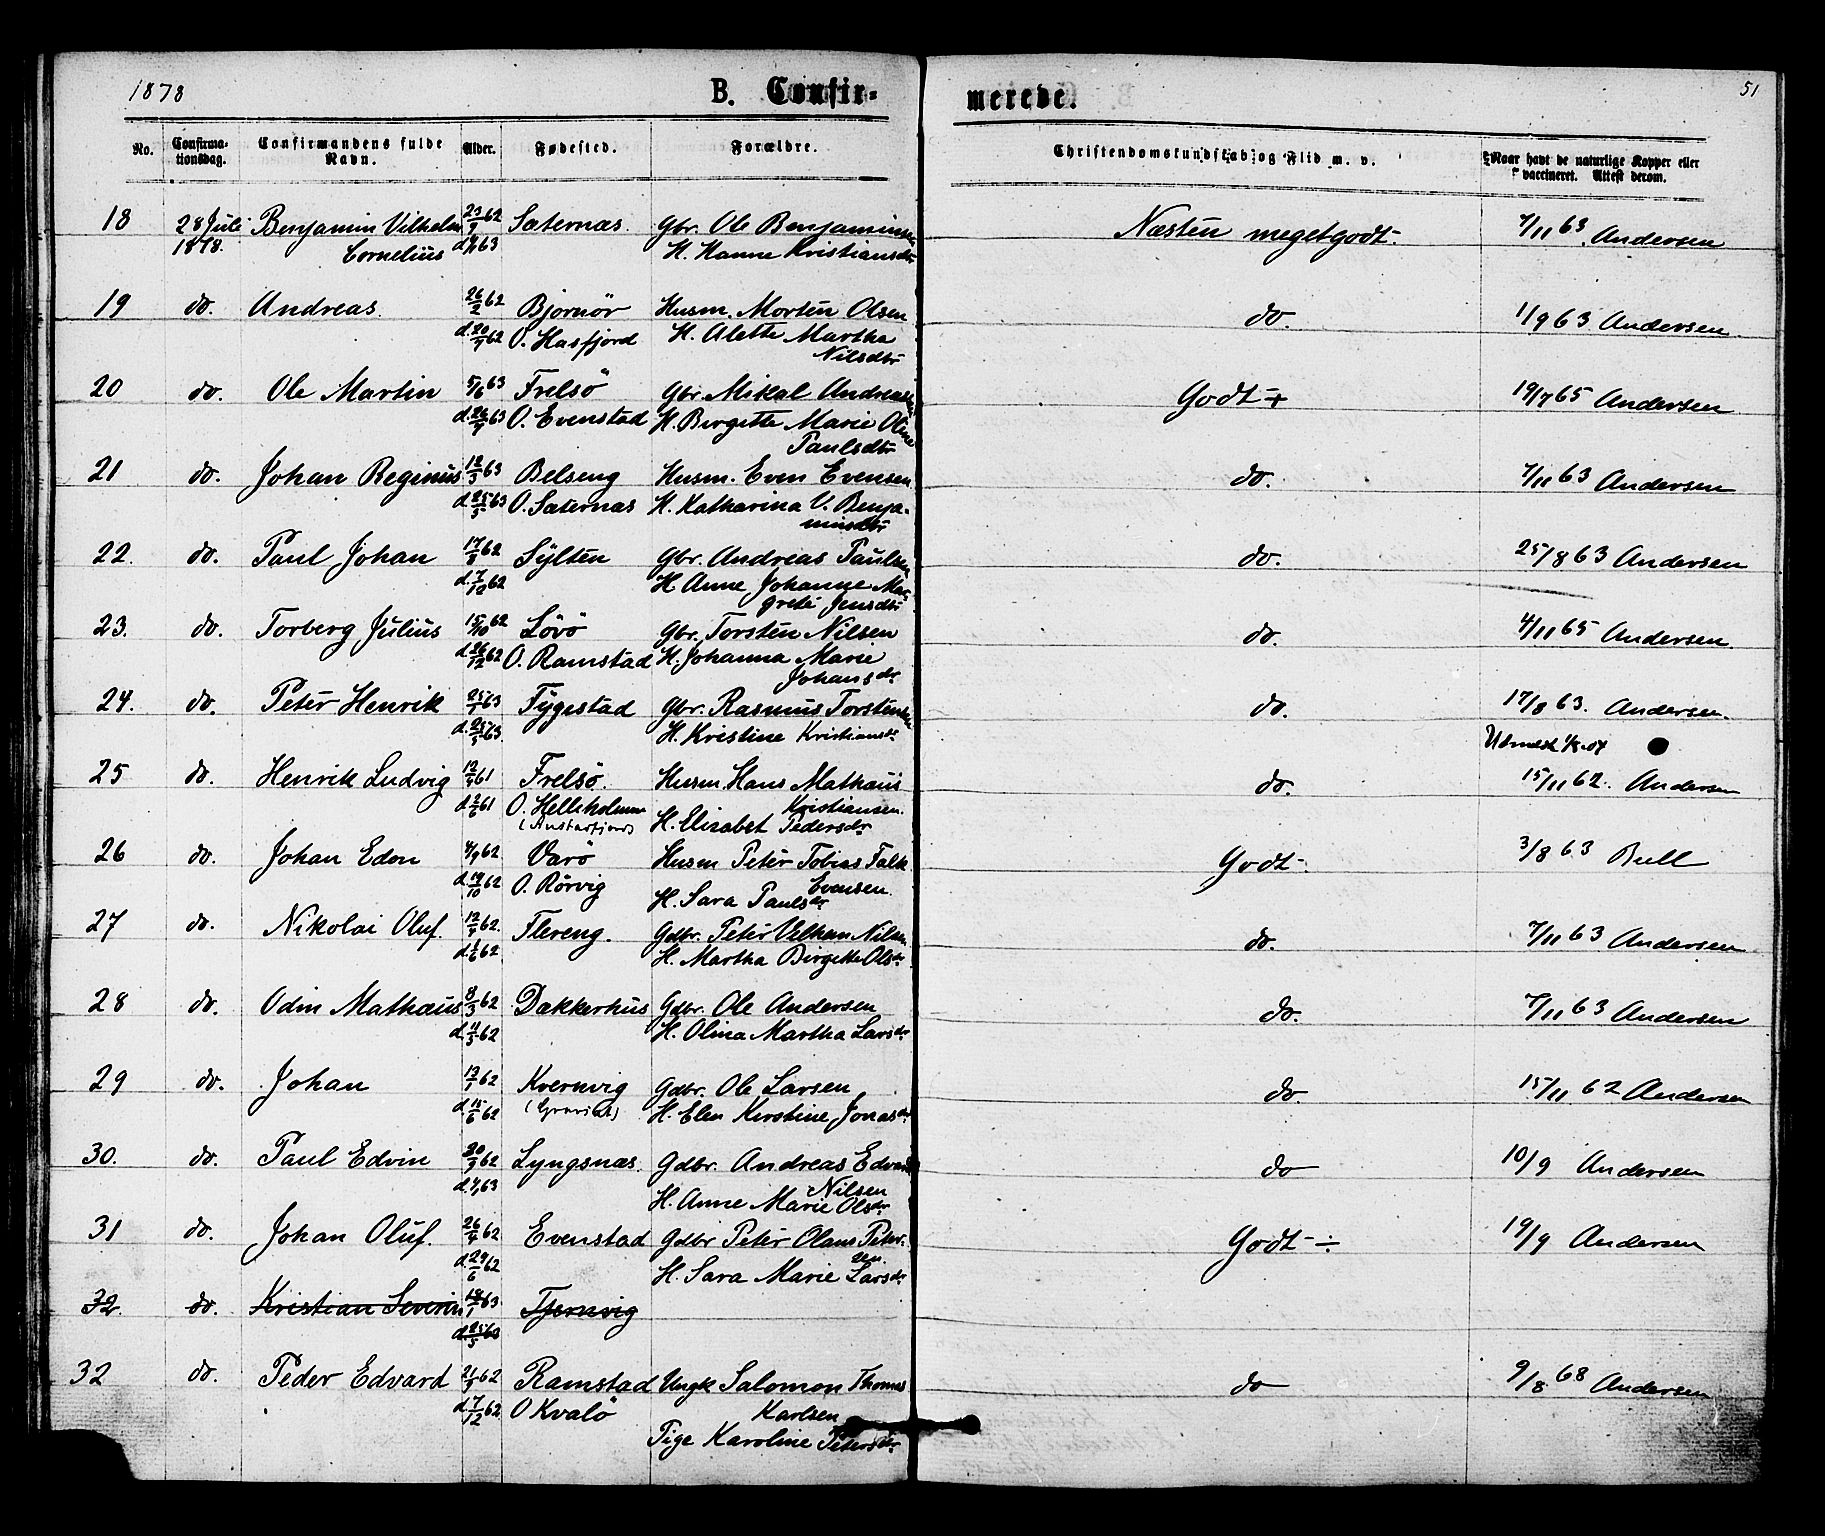 1878 B. Confir- merede. 51
No. Confirma- tionsdag. Confirmandens fulde Navn. Alder. Fødested. Forældre. Christendomskundskab og Flid m. v. Naar havt de naturlige Kopper eller vaccineret. Attest derom.
18 28 Juli Benjamin Vilhelm 23/9 62 Sæternæs Gbr. Ole Benjaminsen Næsten megetgodt. 7/11 63 Andersen
1878. Cornelius H. Hanne Kristiansdtr
19 do. Andreas. 26/2 62 Bjørnör Husm. Morten Olsen do. 1/9 63 Andersen
d. 20/7 62 O. Hasfjord H. Alette Martha
Nilsdtr
20 do. Ole Martin 5/6 63 Frelsö Gbr. Mikal Andreasen Godt + 19/7 65 Andersen
d. 26/7 63 O. Evenstad H. Birgitte Marie Oline
Paulsdtr
21 do. Johan Reginus 12/3 63 Belseng Husm. Even Evensen do. 7/11 63 Andersen
d. 25/5 63 O. Sæternæs H. Katharina V. Benja-
minsdtr
22. do. Paul Johan 17/8 62 Sylten Gbr. Andreas Paulsen do. 25/8 63 Andersen
d. 7/12 62 H. Anne Johanne Mar-
grete Jensdtr
23. do. Torberg Julius 15/10 62 Lövö Gbr. Torsten Nilsen do. 4/11 65 Andersen.
d. 26/12 62 O. Ramstad H. Johanna Marie
Johansdr
24. do. Peter Henrik 25/1 63 Tygestad Gbr. Rasmus Torstensen do. 17/8 63. Andersen.
d. 25/5 63. H. Kristine Kristiansdr
Udmeldt
25 do. Henrik Ludvig 12/4 61 Frelsö. Husm. Hans Mathæus do. 15/11 62. Andersen
d. 2/6 61 O. Helleholmen Kristiansen.
H. Elisabet Pedersdr
26 do. Johan Edon 4/9 62 Varö Husm Peter Tobias Falk Godt. 3/8 63 Bull
d. 19/10 62 O. Rörvig Evensen.
H. Sara Paulsdr
27 do. Nikolai Oluf. 12/4 62. Flereng. Gdbr. Peter Velhem Nilsen do. 7/11 63 Andersen
d. 1/6 62 H. Martha Birgitte Olsdr
28 do. Odin Mathæus 8/3 62 Dækkerhus Gdbr. Ole Andersen do. 7/11 63 Andersen
d. 11/5 62 H. Olina Martha Larsdr
29 do. Johan 13/1 62 Kvernvig Gdbr. Ole Larsen do. 15/11 62 Andersen
d. 15/6 62 H. Elen Kirstine Jonasdr
30. do. Paul Edvin 20/9 62 Lyngsnæs. Gdbr. Andreas Edvard do 10/9 Andersen
Nilsen
H. Anne Marie Olsdr
31 do. Johan Oluf. 26/4 62 Evenstad Gdbr Peter Olaus Peter- Godt ÷ 19/9 Andersen
d. 29/6 62 sen.
H. Sara Marie Larsdr
32. do. Kristian Severin 18/1 63 Tjernvig
d. 25/5 63
32 do. Peder Edvard 21/9 62 Ramstad Ungk Salomon Thomas do 9/8 68 Andersen
d. 7/12 62 O Kvalö Karlsen
Pige Karoline Petersdr